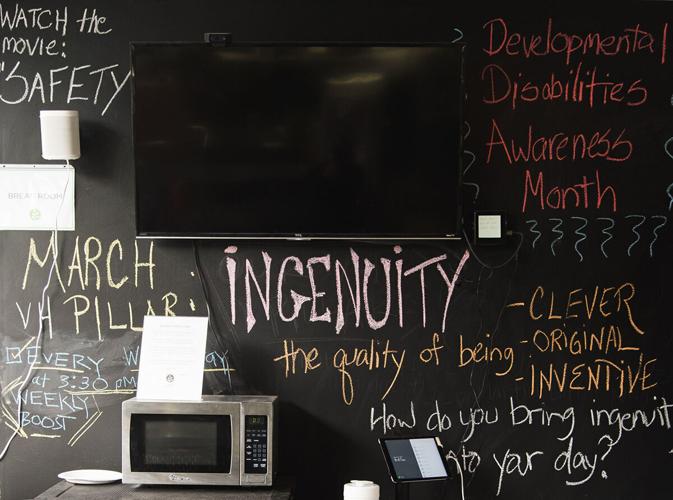 WATCH the
movie:
"SAFETY
BREAKROOM
Developmental
Disabilities
Awareness
Month
MARCH
VH PILLAR:
INGENUITY
the quality of being
- CLEVER
- ORIGINAL
- INVENTIVE
EVERY
at 3:30 pm
WEEKLY
BOOST
How do you bring ingenuit
to your day?
TCL